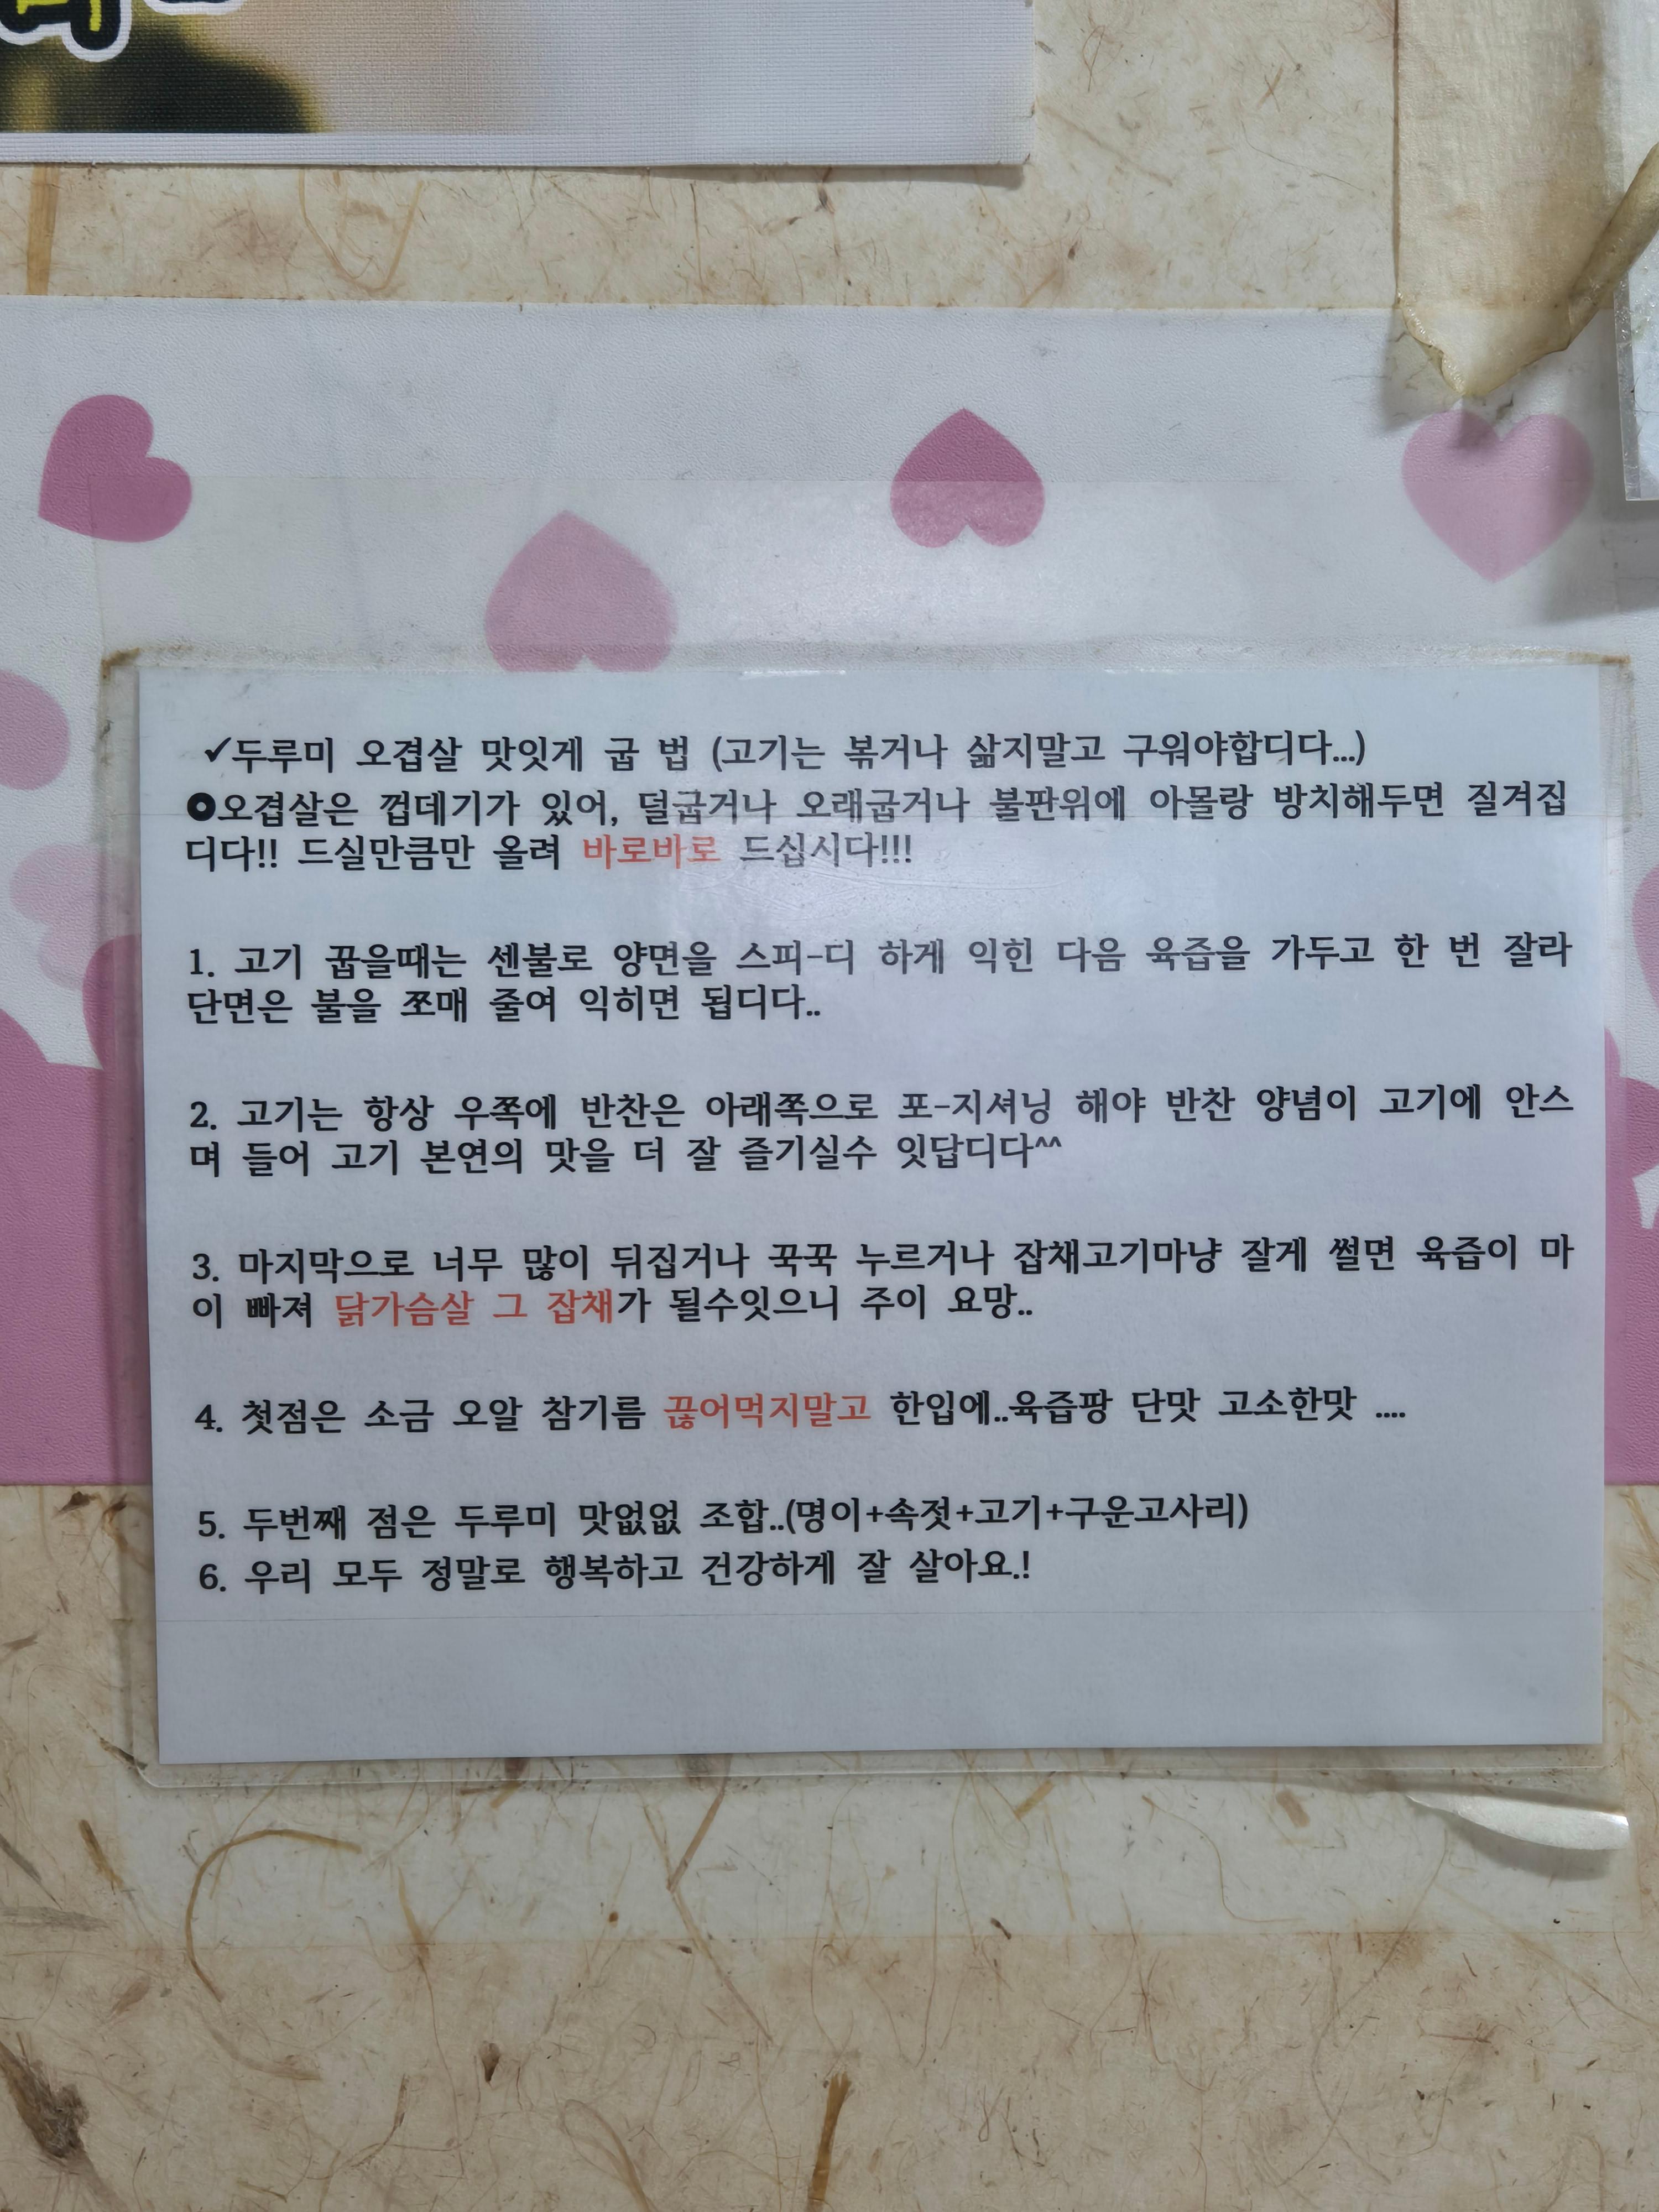 ✓두루미 오겹살 맛잇게 굽 법 (고기는 볶거나 삶지말고 구워야합디다...)
오겹살은 껍데기가 있어, 덜굽거나 오래굽거나 불판위에 아몰랑 방치해두면 질겨집
디다!! 드실만큼만 올려 바로바로 드십시다!!!
1. 고기 꿉을때는 센불로 양면을 스피-디 하게 익힌 다음 육즙을 가두고 한 번 잘라
단면은 불을 쪼매 줄여 익히면 됩디다..
2. 고기는 항상 우쪽에 반찬은 아래쪽으로 포-지셔닝 해야 반찬 양념이 고기에 안스
며 들어 고기 본연의 맛을 더 잘 즐기실수 잇답디다^^
3. 마지막으로 너무 많이 뒤집거나 꾹꾹 누르거나 잡채고기마냥 잘게 썰면 육즙이 마
이 빠져 닭가슴살 그 잡채가 될수잇으니 주이 요망..
4. 첫점은 소금 오알 참기름 끊어먹지말고 한입에..육즙팡 단맛 고소한맛 ....
5. 두번째 점은 두루미 맛없없 조합..(명이+속젓+고기+구운고사리)
6. 우리 모두 정말로 행복하고 건강하게 잘 살아요.!